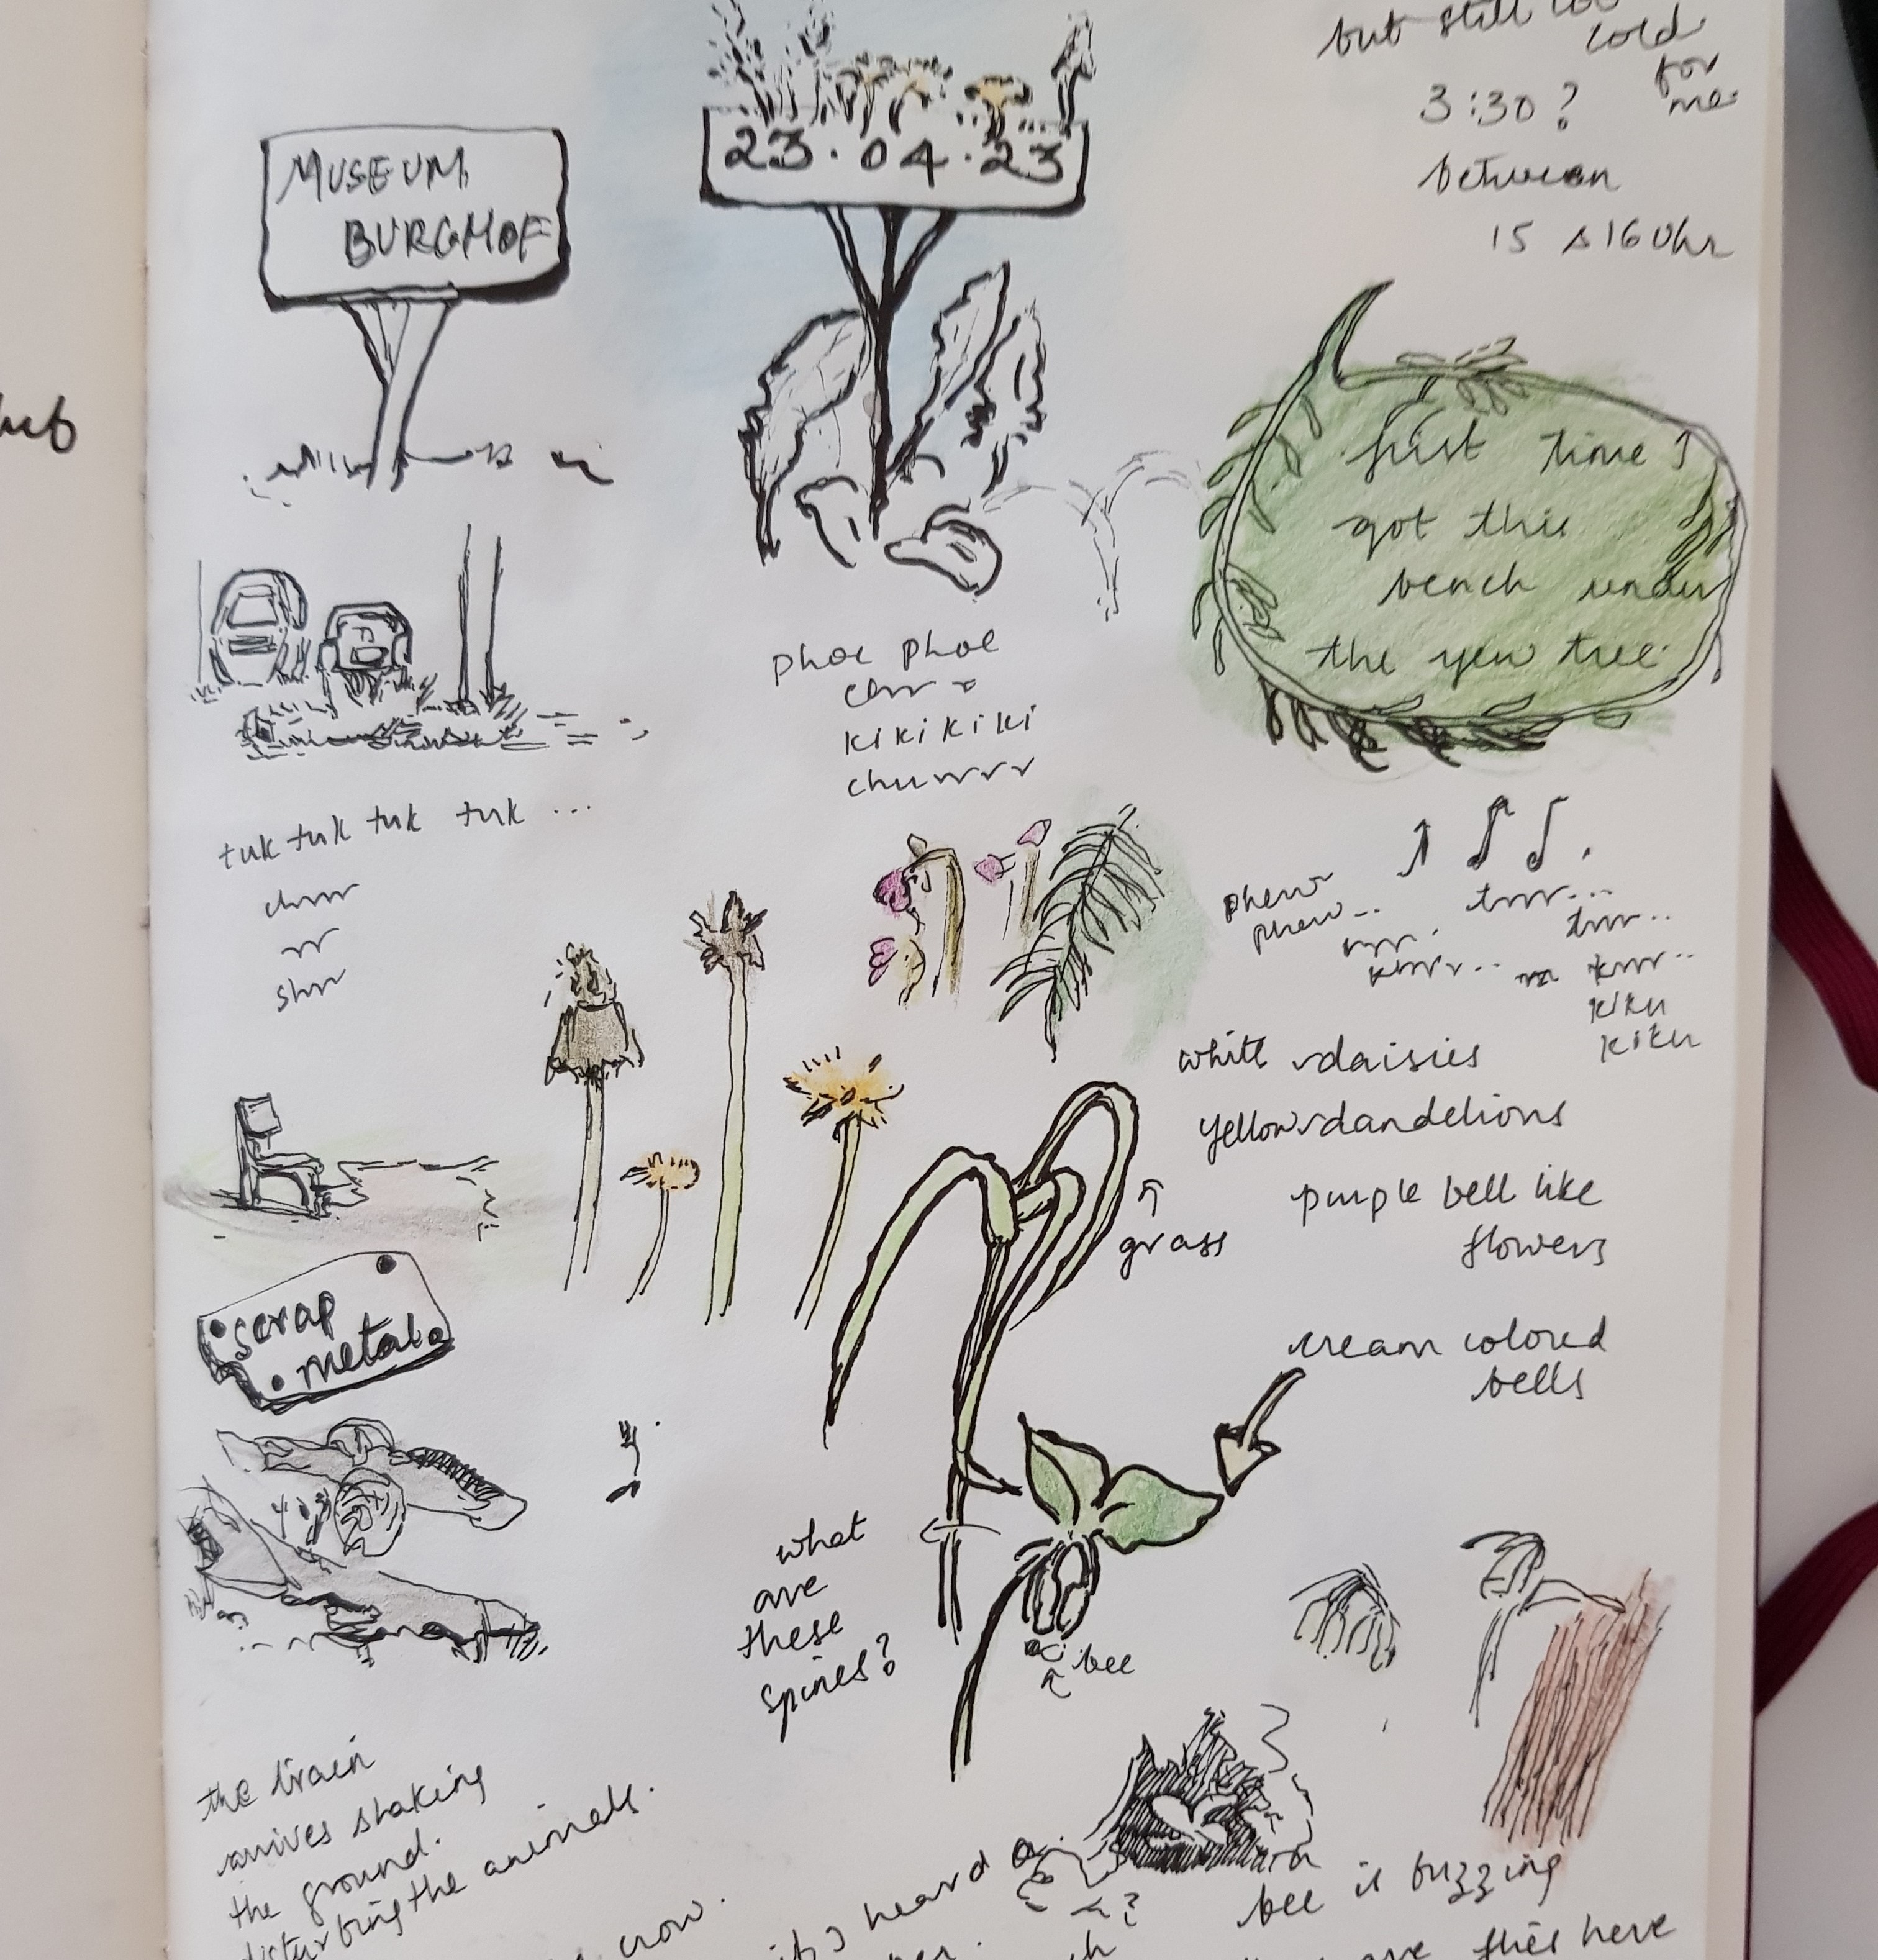 but still too
cold
for
me.
3:30?
between
15 & 16 Uhr
MUSEUM
BURGHOF
23.04.23
first time I
got this
bench under
the yew tree.
phoe phoe
chrr r
kikikiki
churrrr
tuk tuk tuk tuk ...
chrrr
rr
shrr
phew
phew...
trrr...
trrr..
krrr..
krrr..
kiku
kiku
white daisies
yellow dandelions
purple bell like
flowers
grass
scrap
metal
cream colored
bells
what
are
these
spines?
bee
the train
arrives shaking
the ground.
disturbing the animals.
crow.
heard a
bee is buzzing
are flies here